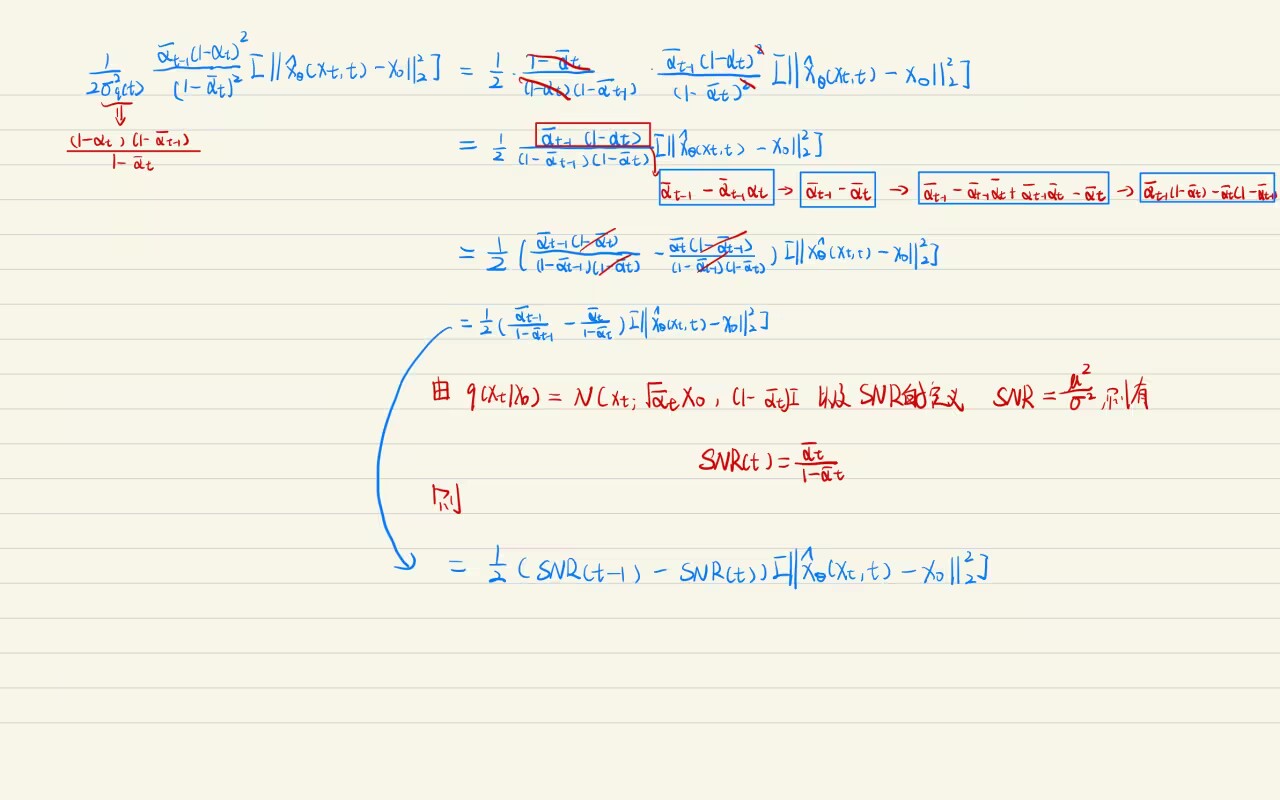 1/(2σ_q²(t)) · ᾱ_{t-1}(1-α_t)²/(1-ᾱ_t)² [‖x̂_θ(x_t,t) - x_0‖₂²] = 1/2 · (1-ᾱ_t)/((1-α_t)(1-ᾱ_{t-1})) · ᾱ_{t-1}(1-α_t)²/(1-ᾱ_t)² [‖x̂_θ(x_t,t) - x_0‖₂²]
⇓
(1-α_t)(1-ᾱ_{t-1})/(1-ᾱ_t)
= 1/2 ᾱ_{t-1}(1-α_t)/((1-ᾱ_{t-1})(1-ᾱ_t)) [‖x̂_θ(x_t,t) - x_0‖₂²]
ᾱ_{t-1} - ᾱ_{t-1}α_t → ᾱ_{t-1} - ᾱ_t → ᾱ_{t-1} - ᾱ_{t-1}ᾱ_t + ᾱ_{t-1}ᾱ_t - ᾱ_t → ᾱ_{t-1}(1-ᾱ_t) - ᾱ_t(1-ᾱ_{t-1})
= 1/2 (ᾱ_{t-1}(1-ᾱ_t)/((1-ᾱ_{t-1})(1-ᾱ_t)) - ᾱ_t(1-ᾱ_{t-1})/((1-ᾱ_{t-1})(1-ᾱ_t))) [‖x̂_θ(x_t,t) - x_0‖₂²]
= 1/2 (ᾱ_{t-1}/(1-ᾱ_{t-1}) - ᾱ_t/(1-ᾱ_t)) [‖x̂_θ(x_t,t) - x_0‖₂²]
由 q(x_t|x_0) = N(x_t; √ᾱ_t x_0, (1-ᾱ_t)I 以及 SNR的定义 SNR = μ²/σ², 则有
SNR(t) = ᾱ_t/(1-ᾱ_t)
则
= 1/2 (SNR(t-1) - SNR(t)) [‖x̂_θ(x_t,t) - x_0‖₂²]